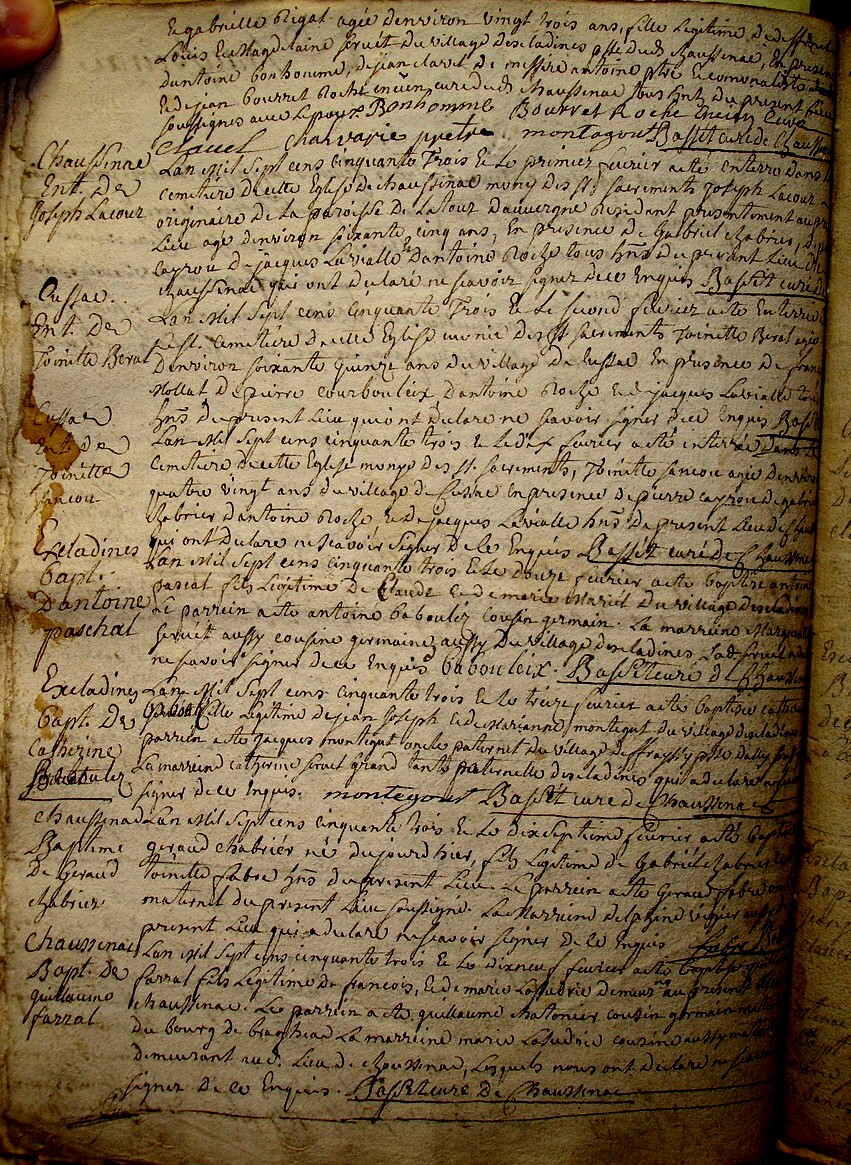 et gabrielle Rigal agée denviron vingt trois ans, fille Legitime de
Louis et Magdelaine seruët du village descladines dud. chaussenac, En presence
dantoine bonhoume, de jean clavel de messire antoine ptre et comunaliste
et de jean bourret Roche encien curé dud. chaussenac tous hnts du present lieu
soussignés avec le Bonhomme Bourret Roche encien Curé
Clauel Chauvarie prettre montagout Basset curé de Chaussenac
Chaussenac
Ent. de
Joseph Lacour
Lan Mil Sept cens Cinquante Trois et le premier fevrier a eté enterré dans le
cemetiere de cette Eglise de chaussenac muny des sts sacrements joseph Lacour
originaire de la paroisse de Latour dauvergne Residant presentement au
Lieu agé denviron soixante cinq ans, En presence de Gabriel chabrier, de
cayrou de jacques Lavialle dantoine Roche tous hnts du present Lieu de
chaussenac qui ont declaré ne scavoir signer de ce Enquis Basset curé
Cussac.
Ent. de
Toinette Beral
Lan Mil Sept cens Cinquante Trois et le second fevrier a eté Enterrée
cemetiere de cette Eglise munie des sts sacrements Toinette Beral agée
denviron soixante quinze ans du village de Cussac En presence de
Mollat de pierre courbouleix dantoine Roche et de jacques Lavialle tous
hnts du present Lieu qui ont declaré ne scavoir signer de ce Enquis Basset
Cussac
Ent. de
Toinette
Jancou
Lan Mil Sept cens cinquante trois et le dix fevrier a eté enterrée dans le
Cemetiere de cette Eglise munye des sts sacrements, Toinette Jancou agée denviron
quatre vingt ans du village de Cussac En presence de pierre cayrou de gabriel
chabrier dantoine Roche et de jacques Lavialle hnts du present Lieu de
qui ont declaré ne scavoir signer de ce Enquis Basset curé de Chaussenac
Escladines
bapt.
Dantoine
paschal
Lan Mil Sept cens cinquante trois et le douze fevrier a eté baptisé antoine
pascal fils Legitime de Claude et de marie Mariet du village descladines
Le parrein a eté antoine baboulez cousin germain. La marreine
serüët aussy cousine germaine, aussy du village descladines
ne scavoir signer de ce Enquis babouleix. Basset curé de Chaussenac
Escladines
bapt. de
Catherine
Lan Mil Sept cens Cinquante trois et le treize fevrier a eté baptisée
fille Legitime de jean joseph et de Marianne montegut du village descladines
parrein a eté jacques montegut oncle paternel du village de
La marreine catherine seruet grand tante paternelle descladines qui a declaré
signer de ce Enquis. montegout Basset curé de chaussenac
chaussenac
Baptème
De Geraud
chabrier
Lan Mil Sept cens cinquante trois et le dix septieme fevrier a eté baptisé
geraud chabrier né du jourdhier, fils legitime de Gabriel chabrier
toinette fabre hnts du present Lieu. Le parrein a eté Geraud fabre
maternel du present Lieu soussigné. La Marreine delphine
present Lieu qui a declaré ne scavoir signer de ce Enquis fabre
chaussenac
Bapt. de
guillaume
farzal
Lan Mil Sept cens cinquante trois et le dixneuf fevrier a eté baptisé
farzal fils Legitime de francois, et de marie Lafudrie demeurnt au present
chaussenac. Le parrein a eté guillaume chatonier cousin germain
du bourg de brageac La marreine marie Lafudrie cousine aussy
demeurant aud. Lieu de chaussenac, Lesquels nous ont declaré ne scavoir
signer de ce Enquis. Basset curé de Chaussenac